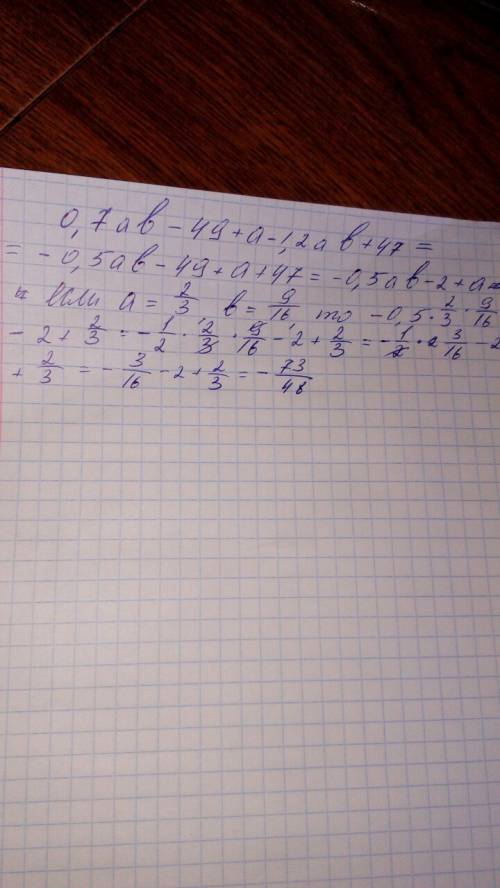 0,7ab - 49 + a - 1,2ab + 47 =
= -0,5ab - 49 + a + 47 = -0,5ab - 2 + a =
если a = 2/3, b = 9/16, то -0,5 · 2/3 · 9/16
- 2 + 2/3 = -1/2 · 2/3 · 9/16 - 2 + 2/3 = -1/2 · 2 3/16 - 2
+ 2/3 = -3/16 - 2 + 2/3 = -73/48